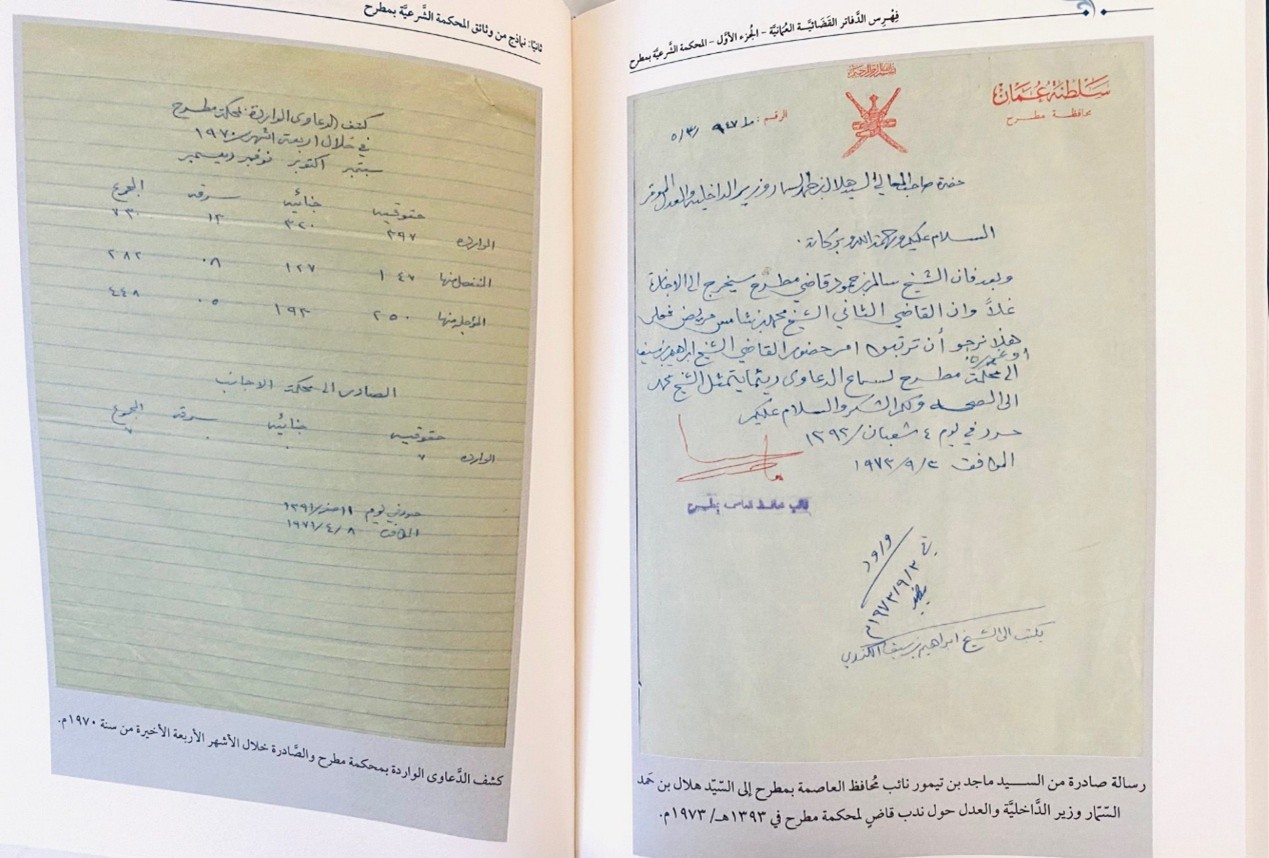 فِهْرِس الدَّفاتر القَضائيَّة العُمانيَّة - الجُزء الأوَّل - المحكمة الشَّرعيَّة بمطرح
سلطنة عُمان
محافظة مطرح
الرقم: ٩٤٧
حضرة صاحب المعالي السيد هلال بن حمد السمار وزير الداخلية والعدل الموقر
السلام عليكم ورحمة الله وبركاته.
وبعد فان الشيخ سالم بن حمود قاضي مطرح سيخرج الى الاجازة
غداً وان القاضي الثاني الشيخ محمد بن شامس مريض فعلى
هذا نرجو أن ترتبوا امر حضور القاضي الشيخ ابراهيم بن سيف
أو غيره
الى محكمة مطرح لسماع الدعاوى ريثما يتمثل الشيخ محمد
الى الصحة ولكم الشكر والسلام عليكم
حرر في يوم ٤ شعبان /١٣٩٣
الموافق ١٩٧٣/٩/٢
ورود
١٩٧٣/٩/٣م
يكتب الى الشيخ ابراهيم بن سيف الكندي
رسالة صادرة من السـيد ماجد بن تيمور نائب مُحافظ العاصمة بمطرح إلى السّيّد هلال بن حمَد
السّمّار وزير الدَّاخليَّة والعدل حول ندب قاضٍ لمحكمة مطرح في ١٣٩٣هـ/ ١٩٧٣م.
ثانيًا: نماذج من وثائق المحكمة الشَّرعيَّة بمطرح
كشف الدعاوى الواردة بمحكمة مطرح
في خلال اربعة اشهر /١٩٧٠
سبتمبر اكتوبر نوفمبر ديسمبر
حقوقيه جنائيه سرقه المجموع
الوارده ٣٩٧ ٣٢٠ ١٣ ٧٣٠
المنفصل منها ١٤٧ ١٢٧ ٠٨ ٢٨٢
المؤجل منها ٢٥٠ ١٩٣ ٠٥ ٤٤٨
الصادر الى محكمة الاجانب
حقوقيه جنائيه سرقه المجموع
الوارده ٧
حرر في يوم ١١ صفر /١٣٩١
الموافق ١٩٧١/٤/٨
كشف الدَّعاوى الواردة بمحكمة مطرح والصَّادرة خلال الأشهر الأربعة الأخيرة من سنة ١٩٧٠م.